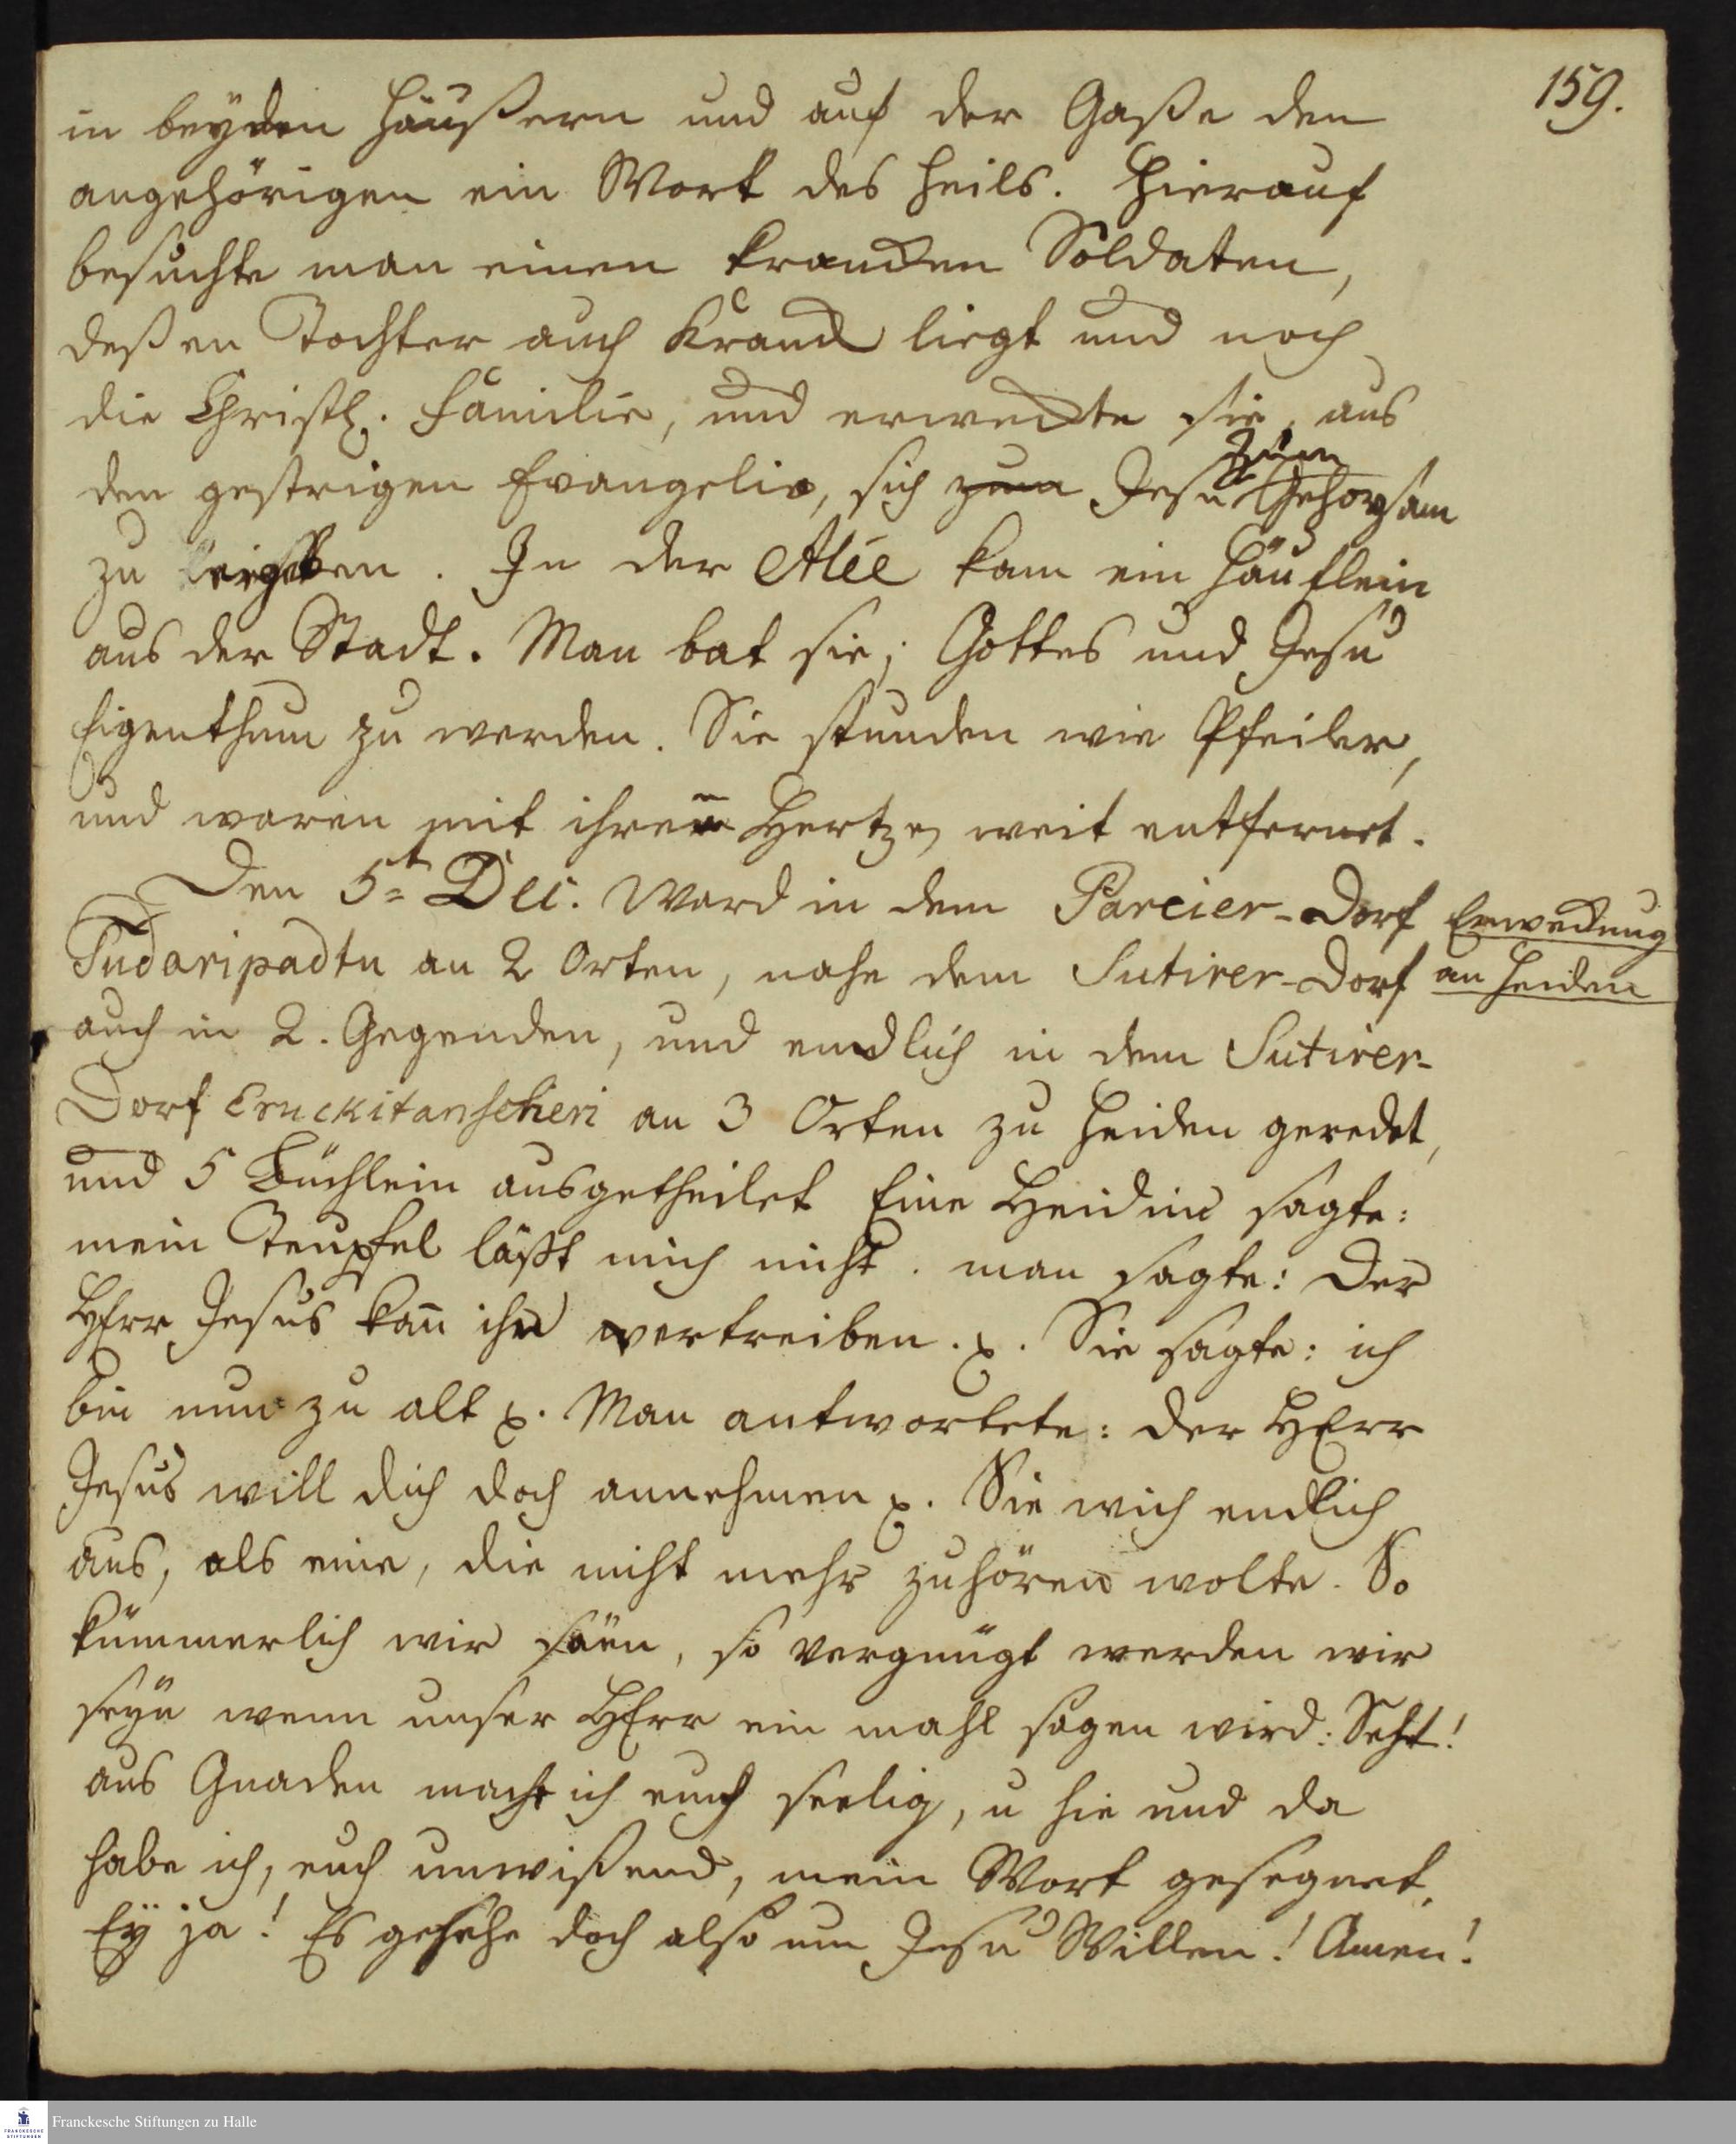 159.
in beyden Häußern und auf der Gaße den
angehörigen ein Wort des Heils. Hierauf
besuchte man einen krancken Soldaten,
deßen Tochter auch Kranck liegt und noch
die Christl. Familie, und erweckte sie, aus
den gestrigen Evangelio, sich zum Jesu zum Gehorsam
zu ergeben. In der Alée kam ein Häuflein
aus der Stadt. Man bat sie, Gottes und Jesu
Eigenthum zu werden. Sie stunden wie Pfeiler,
und waren mit ihren Hertzen weit entfernet.
Den 5t Dec. Ward in dem Pareier-Dorf
Erweckung
Tudaripadtu an 2 Orten, nahe dem Sutirer-Dorf
an Heiden
auch in 2. Gegenden, und endlich in dem Sutirer-
Dorf Eruckitanscheri an 3 Orten zu Heiden geredet,
und 5 Büchlein ausgetheilet Eine Heidin sagte:
mein Teupfel läßt mich nicht. man sagte: Der
HErr Jesus kan̄ ihn vertreiben. p. Sie sagte: ich
bin nun zu alt p. Man antwortete: der HErr
Jesus will dich doch annehmen p. Sie wich endlich
aus, als eine, die nicht mehr zuhören wolte. So
kümmerlich wir säen, so vergnügt werden wir
seyn wenn unser HErr ein mahl sagen wird: Seht!
aus Gnaden macht ich euch seelig, u hie und da
habe ich, euch unwißend, mein Wort gesegnet.
Ey ja! Es geschehe doch also um Jesu Willen! Amen!
Franckesche Stiftungen zu Halle
FRANCKESCHE STIFTUNGEN